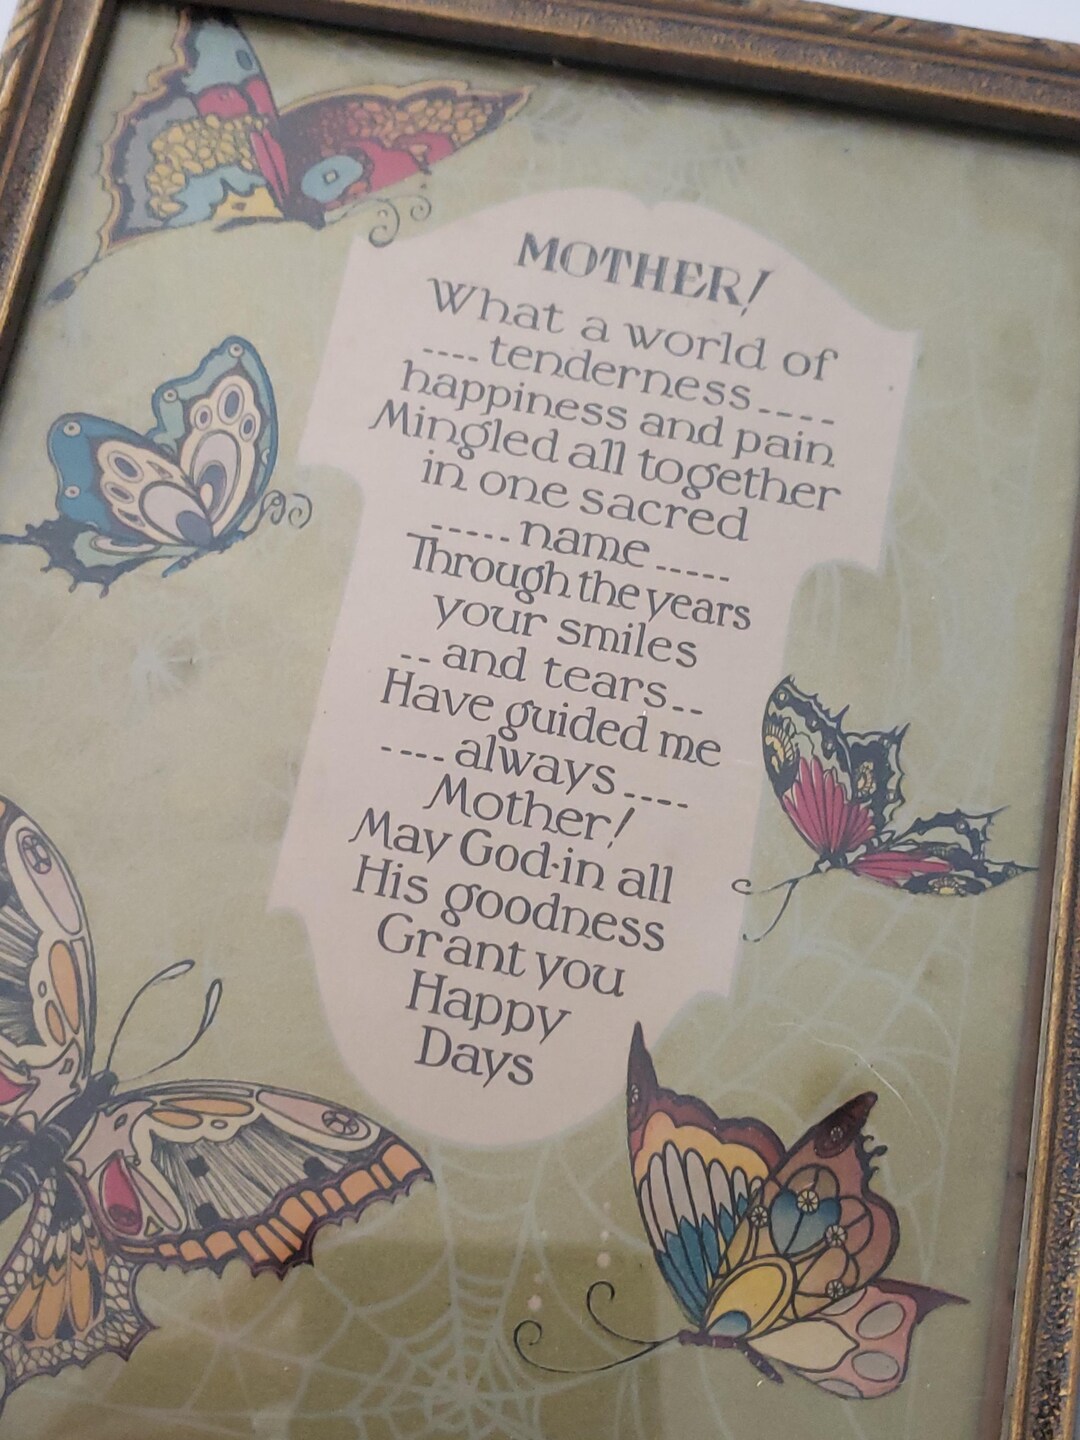 MOTHER!
What a world of
---- tenderness ----
happiness and pain
Mingled all together
in one sacred
---- name -----
Through the years
your smiles
-- and tears --
Have guided me
---- always ----
Mother!
May God-in all
His goodness
Grant you
Happy
Days